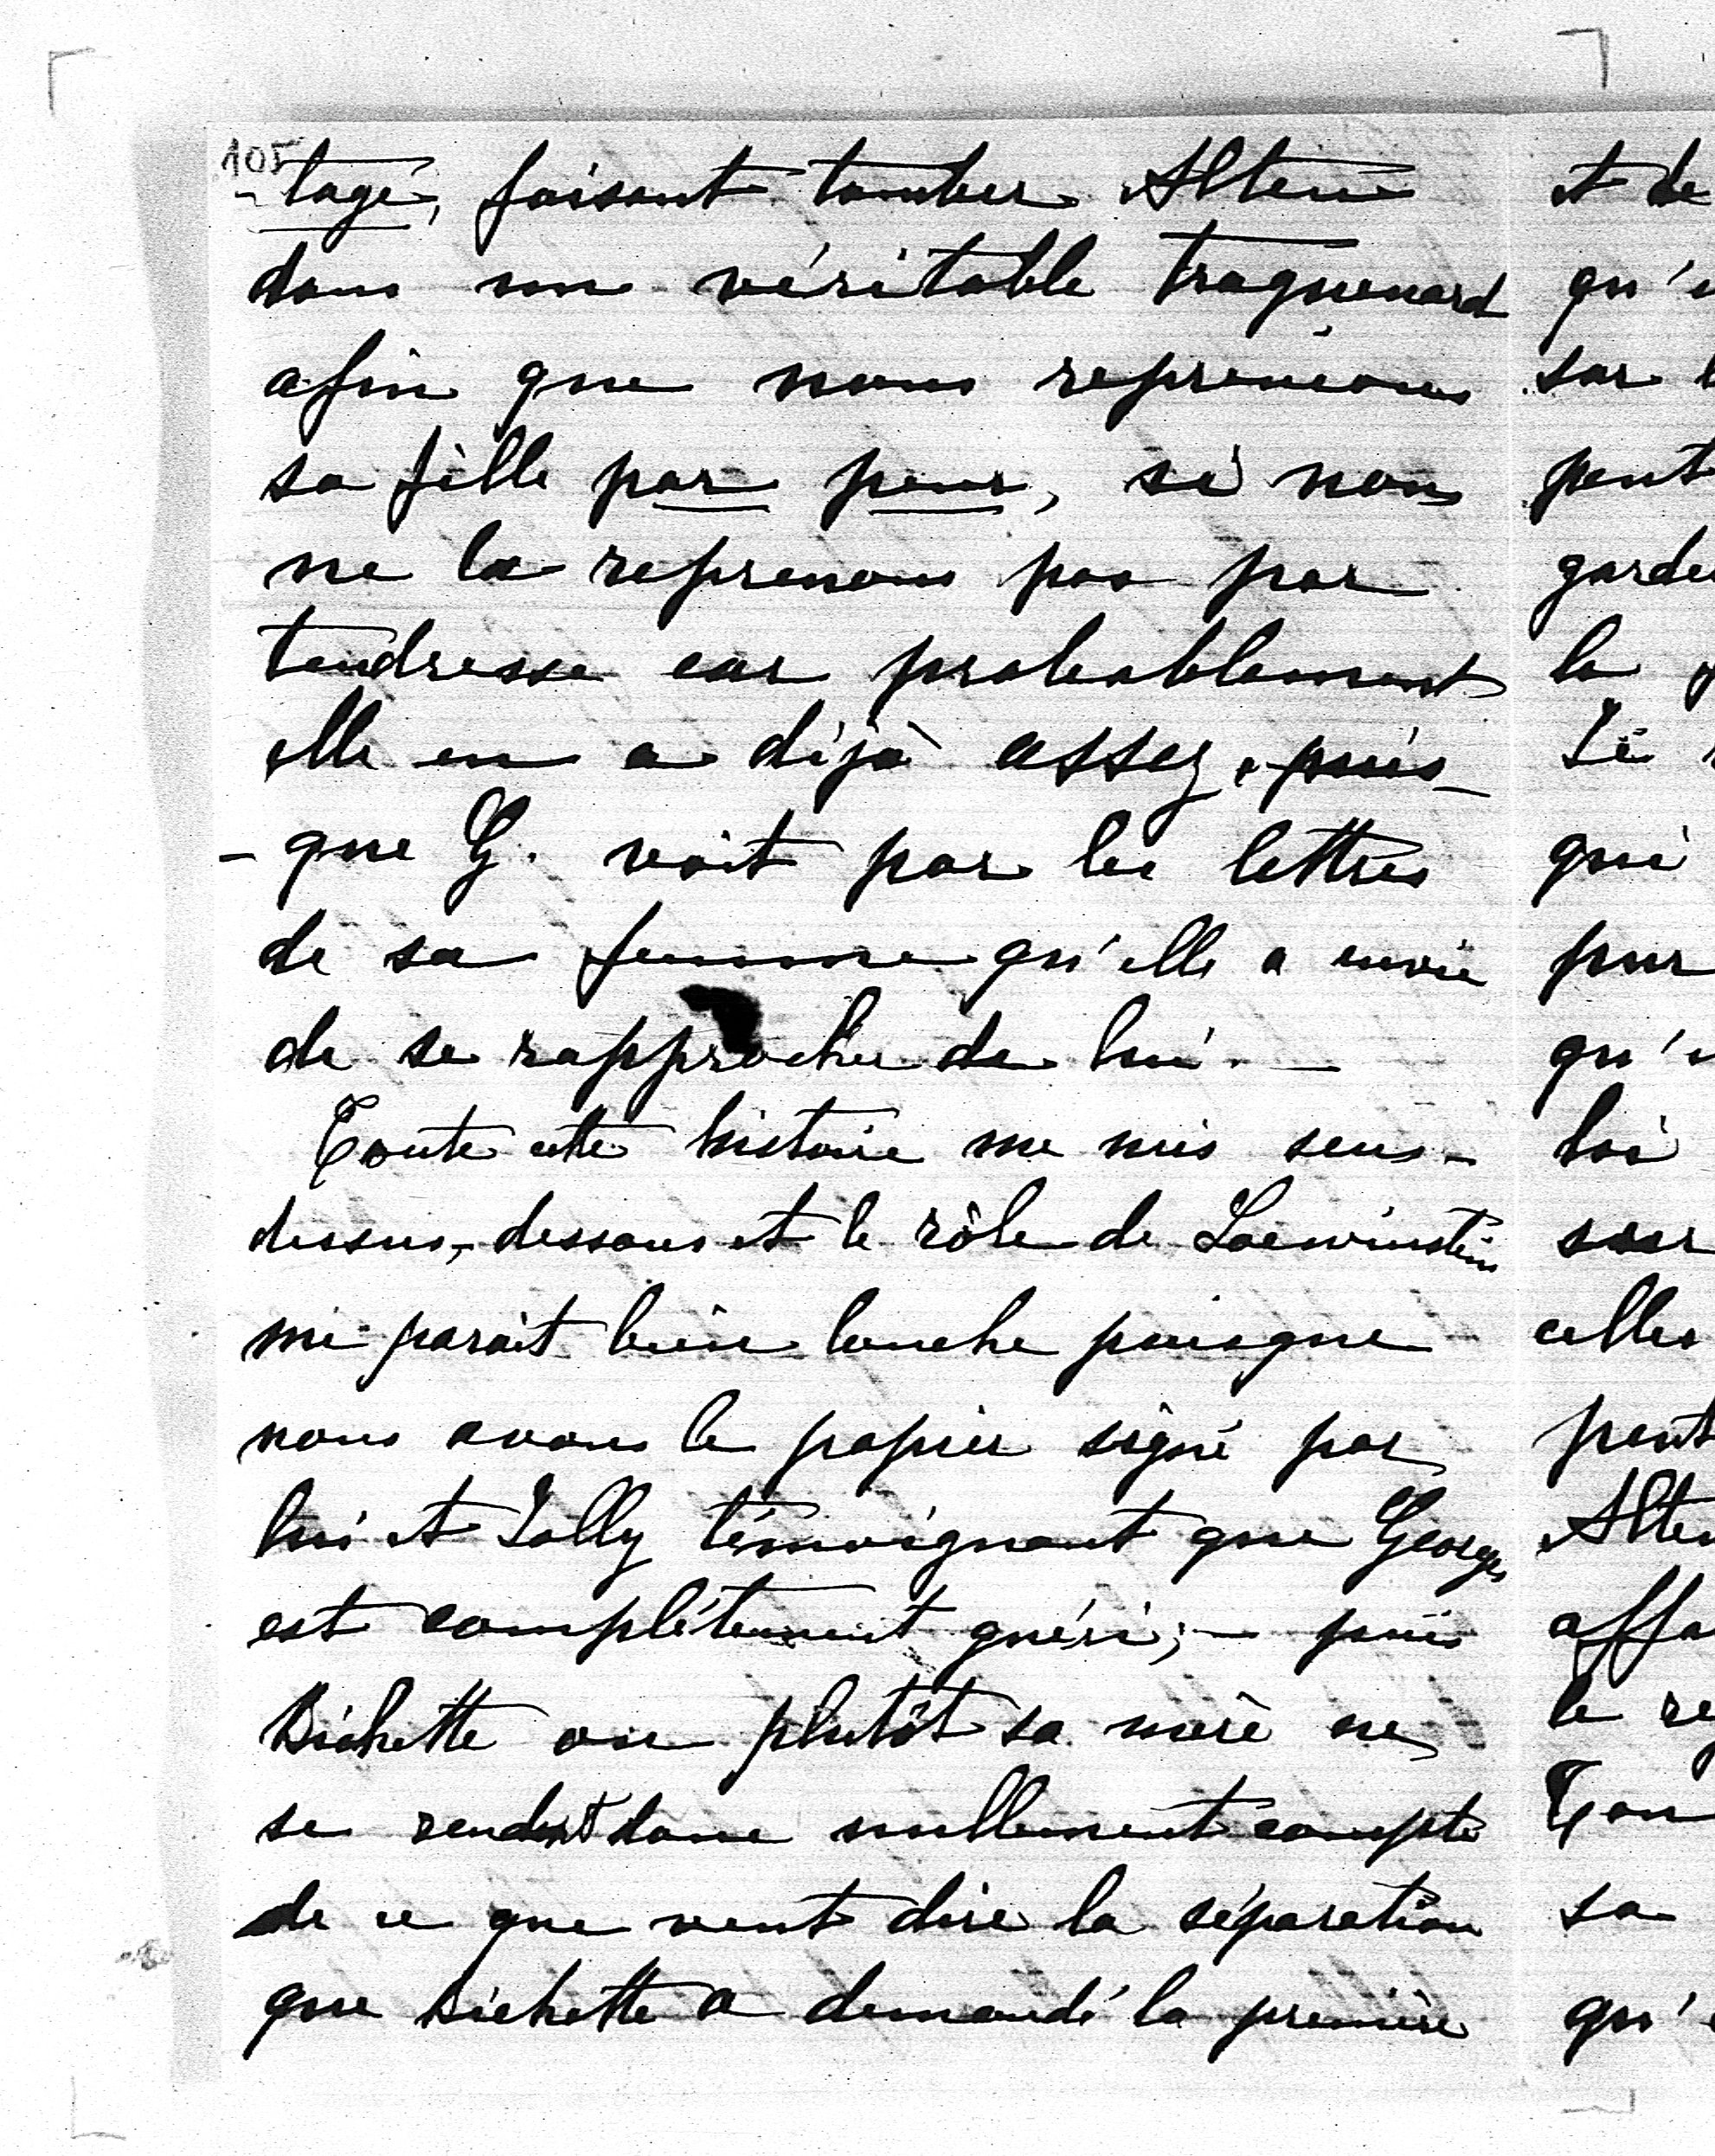 105
-tage, faisant tomber Altern
dans un véritable traquenard
afin que nous reprenions
sa fille par peur, si nous
ne la reprenons pas par
tendresse car probablement
elle en a déjà assez, puis-
-que G. voit par les lettres
de sa femme qu'elle a envie
de se rapprocher de lui. —
Toute cette histoire me mis sens-
dessus-dessous et le rôle de Loewinstein
me parait bien louche puisque
nous avons le papier signé par
lui et Jolly témoignant que Georges
est complétement guéri; — puis
Bichette ou plutôt sa mère ne
se rendent donc nullement compte
de ce que veut dire la séparation
que Bichette a demandé la première
et de
qu'
sur
peut
garder
la
Si
qui
pur
qu'
loi
sur
celles
peut
Alter
affa
le re
Ton
sa
qu'